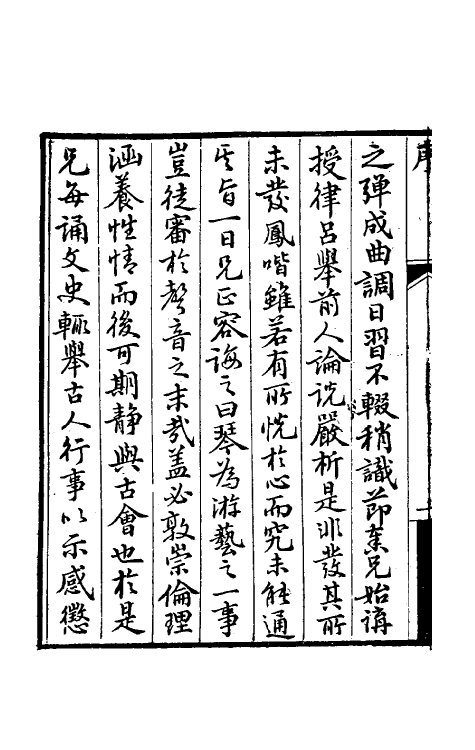 之彈成曲調日習不輟稍識節奏兄始講
授律呂舉前人論說嚴析是非發其所
未發鳳喈雖若有所恍於心而究未能通
其旨一日兄正容誨之曰琴為游藝之一事
豈徒審於聲音之末哉蓋必敦崇倫理
涵養性情而後可期靜與古會也於是
兄每誦文史輒舉古人行事以示感懲